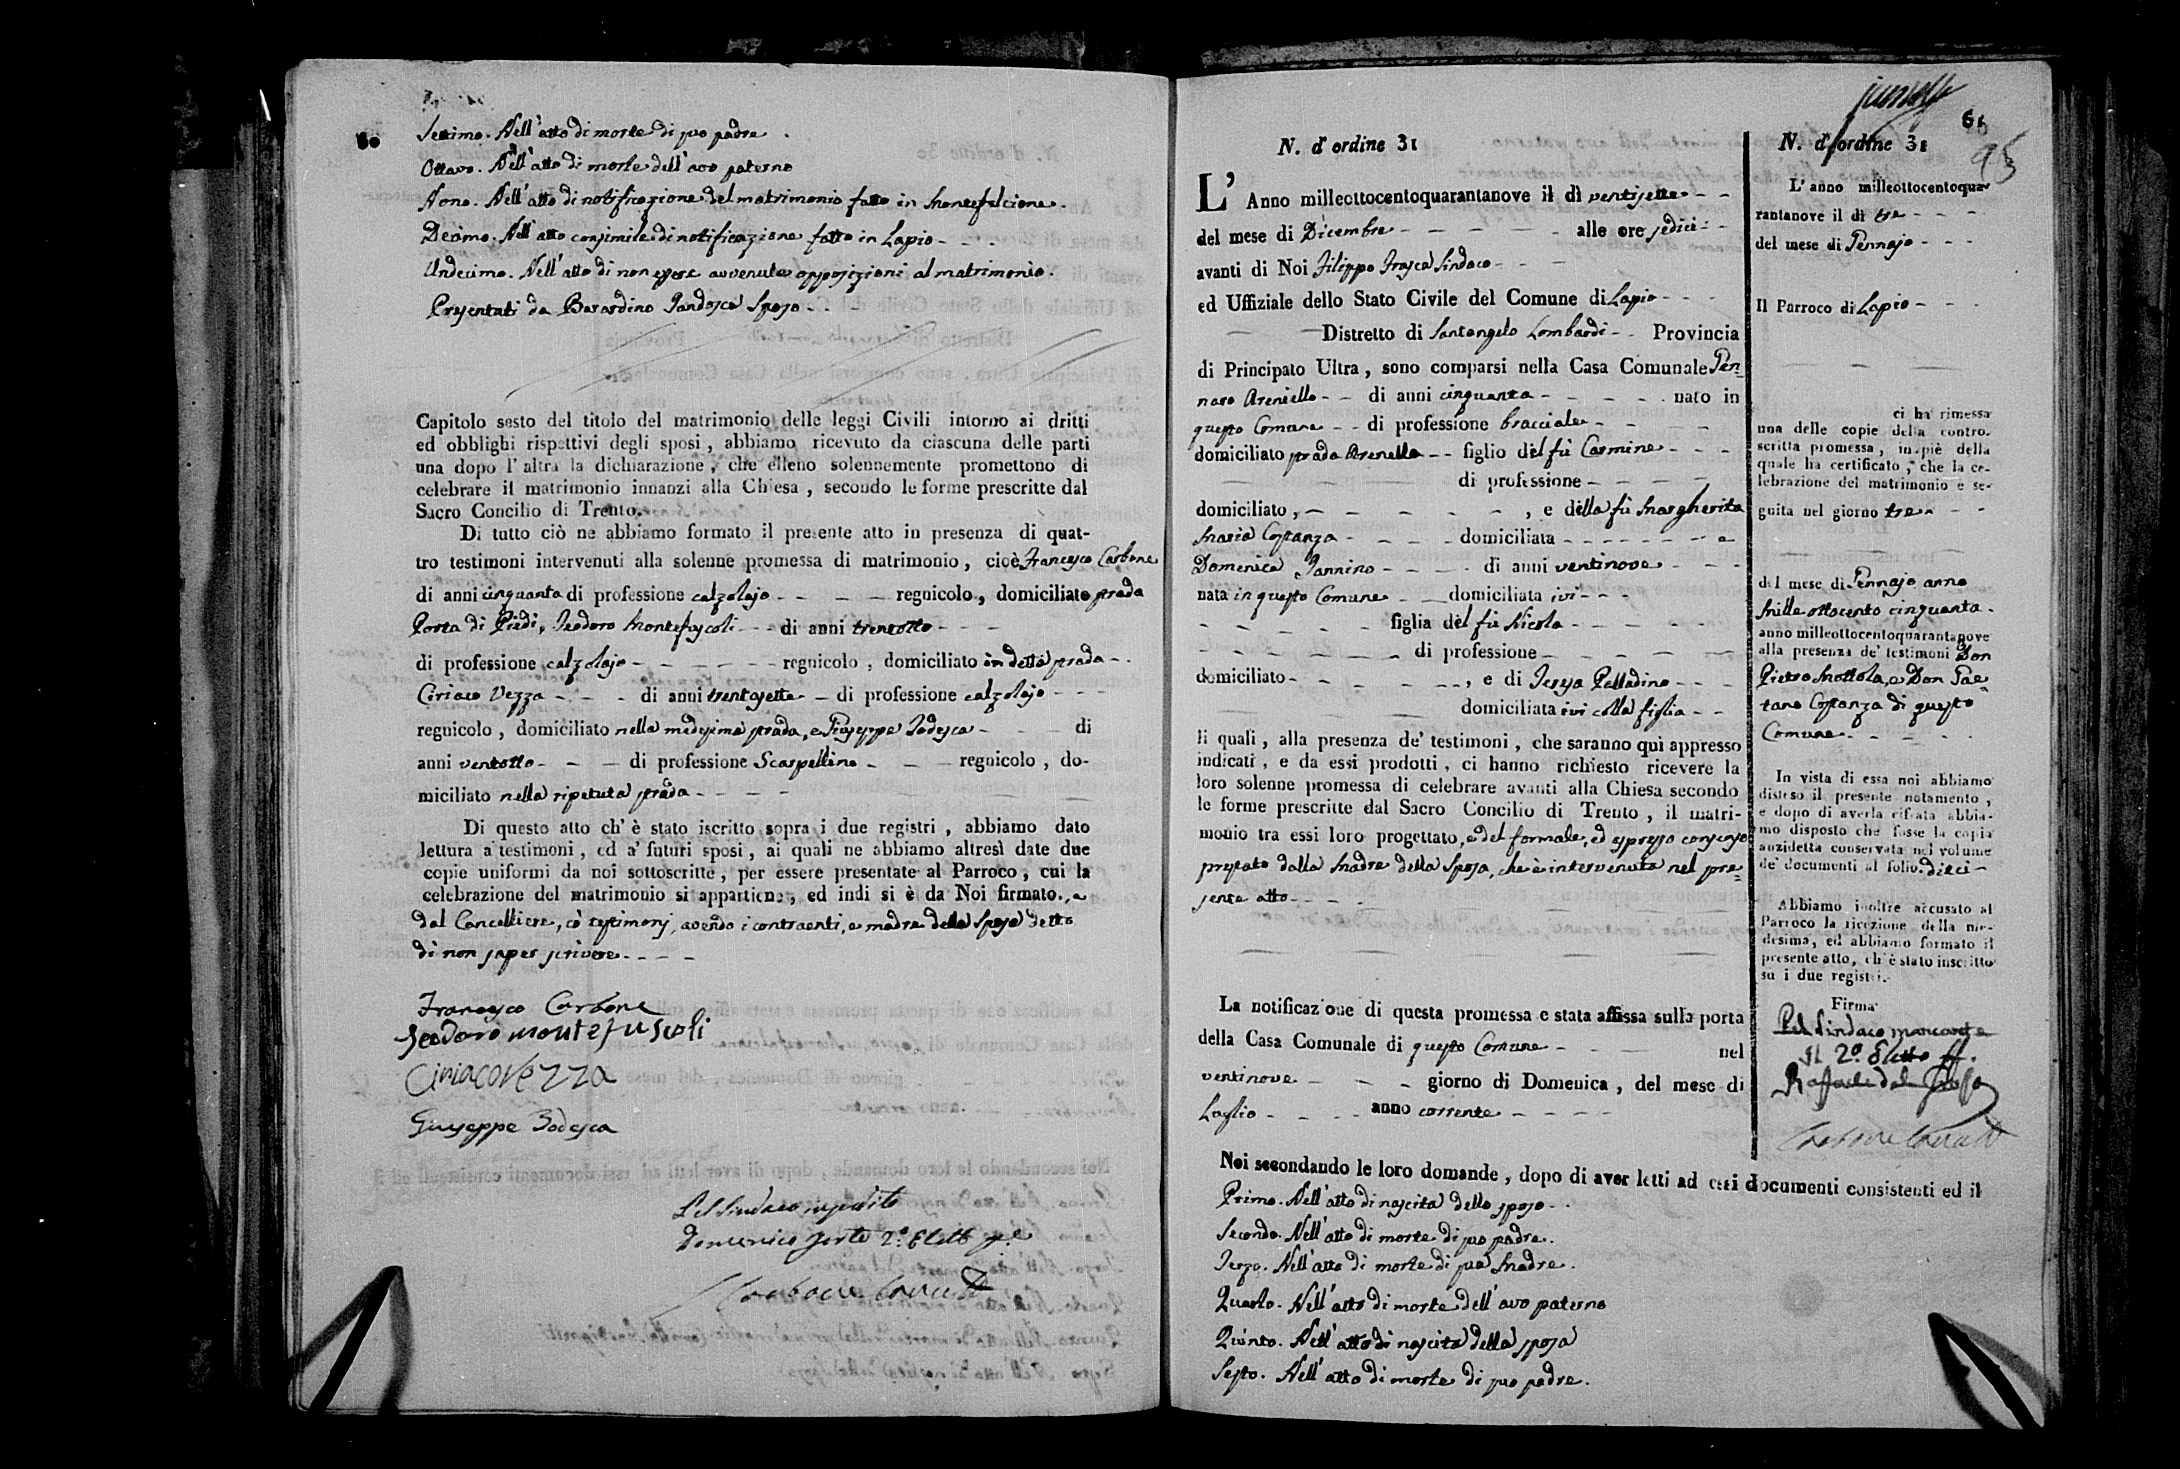 60
Settimo. Nell'atto di morte di suo padre.
Ottavo. Nell'atto di morte dell'avo paterno
Nono. Nell'atto di notificazione del matrimonio fatto in Montefalcione.
Decimo. Nell'atto consimile di notificazione fatto in Lapio - - -
Undecimo. Nell'atto di non essere avvenute opposizioni al matrimonio.
Presentati da Berardino Sposo - - -
Capitolo sesto del titolo del matrimonio delle leggi Civili intorno ai dritti
ed obblighi rispettivi degli sposi, abbiamo ricevuto da ciascuna delle parti
una dopo l'altra la dichiarazione, che elleno solennemente promettono di
celebrare il matrimonio innanzi alla Chiesa, secondo le forme prescritte dal
Sacro Concilio di Trento.
Di tutto ciò ne abbiamo formato il presente atto in presenza di quat-
tro testimoni intervenuti alla solenne promessa di matrimonio, cioè Francesco Carbone
di anni cinquanta di professione calzolajo - - - regnicolo, domiciliato strada
Porta di Piedi, Teodoro Montefuscoli - - di anni trentotto - - -
di professione calzolajo - - - regnicolo, domiciliato in detta strada - -
Ciriaco Vezza - - - di anni trentasette - di professione calzolajo - - -
regnicolo, domiciliato nella medesima strada, e Giuseppe Todesca - - - di
anni ventotto - - - di professione Scarpellino - - - regnicolo, do-
miciliato nella ripetuta strada - - - -
Di questo atto ch'è stato iscritto sopra i due registri, abbiamo dato
lettura a' testimoni, ed a' futuri sposi, ai quali ne abbiamo altresì date due
copie uniformi da noi sottoscritte, per essere presentate al Parroco, cui la
celebrazione del matrimonio si appartiene, ed indi si è da Noi firmato, e
dal Cancelliere, co' testimonj, avendo i contraenti, e madre della Sposa detto
di non saper scrivere - - - -
Francesco Carbone
Teodoro montefuscoli
Ciriaco Vezza
Giuseppe Todesca
Pel Sindaco impedito
Domenico 2.° Eletto
Carbone
61
95
N. d'ordine 31
L'Anno milleottocentoquarantanove il dì ventisette - -
del mese di Dicembre - - - - - alle ore sedici - -
avanti di Noi Filippo Frasca Sindaco - - -
ed Uffiziale dello Stato Civile del Comune di Lapio - - -
Distretto di Santangelo Lombardi - - Provincia
di Principato Ultra, sono comparsi nella Casa Comunale Gen=
naro Areniello - - di anni cinquanta - - - - nato in
questo Comune - - di professione bracciale - - -
domiciliato strada Arenella - - figlio del fù Carmine - - -
di professione - - - -
domiciliato, - - - - -, e della fù Margherita
Maria Costanza - - - - domiciliata - - - - - - e
Domenica Jannino - - - - di anni ventinove - - -
nata in questo Comune - - domiciliata ivi - - -
- - - - figlia del fù Nicola - - - -
- - - - di professione - - - -
domiciliato - - - - - -, e di Teresa Palladino - - -
domiciliata ivi colla figlia - -
li quali, alla presenza de' testimoni, che saranno qui appresso
indicati, e da essi prodotti, ci hanno richiesto ricevere la
loro solenne promessa di celebrare avanti alla Chiesa secondo
le forme prescritte dal Sacro Concilio di Trento, il matri-
monio tra essi loro progettato, e del formale, ed espresso consenso
prestato dalla Madre della Sposa, che è intervenuta nel pre=
sente atto - - - -
La notificazione di questa promessa e stata affissa sulla porta
della Casa Comunale di questo Comune - - - nel
ventinove - - - giorno di Domenica, del mese di
Luglio - - - - anno corrente - - - -
Noi secondando le loro domande, dopo di aver letti ad essi documenti consistenti ed il
Primo. Nell'atto di nascita dello sposo - -
Secondo. Nell'atto di morte di suo padre.
Terzo. Nell'atto di morte di sua Madre.
Quarto. Nell'atto di morte dell'avo paterno
Quinto. Nell'atto di nascita della sposa
Sesto. Nell'atto di morte di suo padre.
N. d'ordine 31
L'anno milleottocentoqua-
rantanove il di tre - - -
del mese di Gennajo - - -
Il Parroco di Lapio - - -
ci ha rimessa
una delle copie della contro-
scritta promessa, in piè della
quale ha certificato, che la ce-
lebrazione del matrimonio è se-
guita nel giorno tre - - -
del mese di Gennajo anno
Mille ottocento cinquanta -
anno milleottocentoquarantanove
alla presenza de' testimoni Don
Pietro Mottola, e Don Gae=
tano Costanza di questo
Comune - - - - -
In vista di essa noi abbiamo
disteso il presente notamento,
e dopo di averla cifrata abbia-
mo disposto che fosse la copia
anzidetta conservata nel volume
de' documenti al folio dieci -
Abbiamo inoltre accusato al
Parroco la ricezione della me-
desima, ed abbiamo formato il
presente atto, ch'è stato inscritto
su i due registri.
Firma
Pel Sindaco mancante
Il 2.° Eletto ff.
Raffaele
Carbone